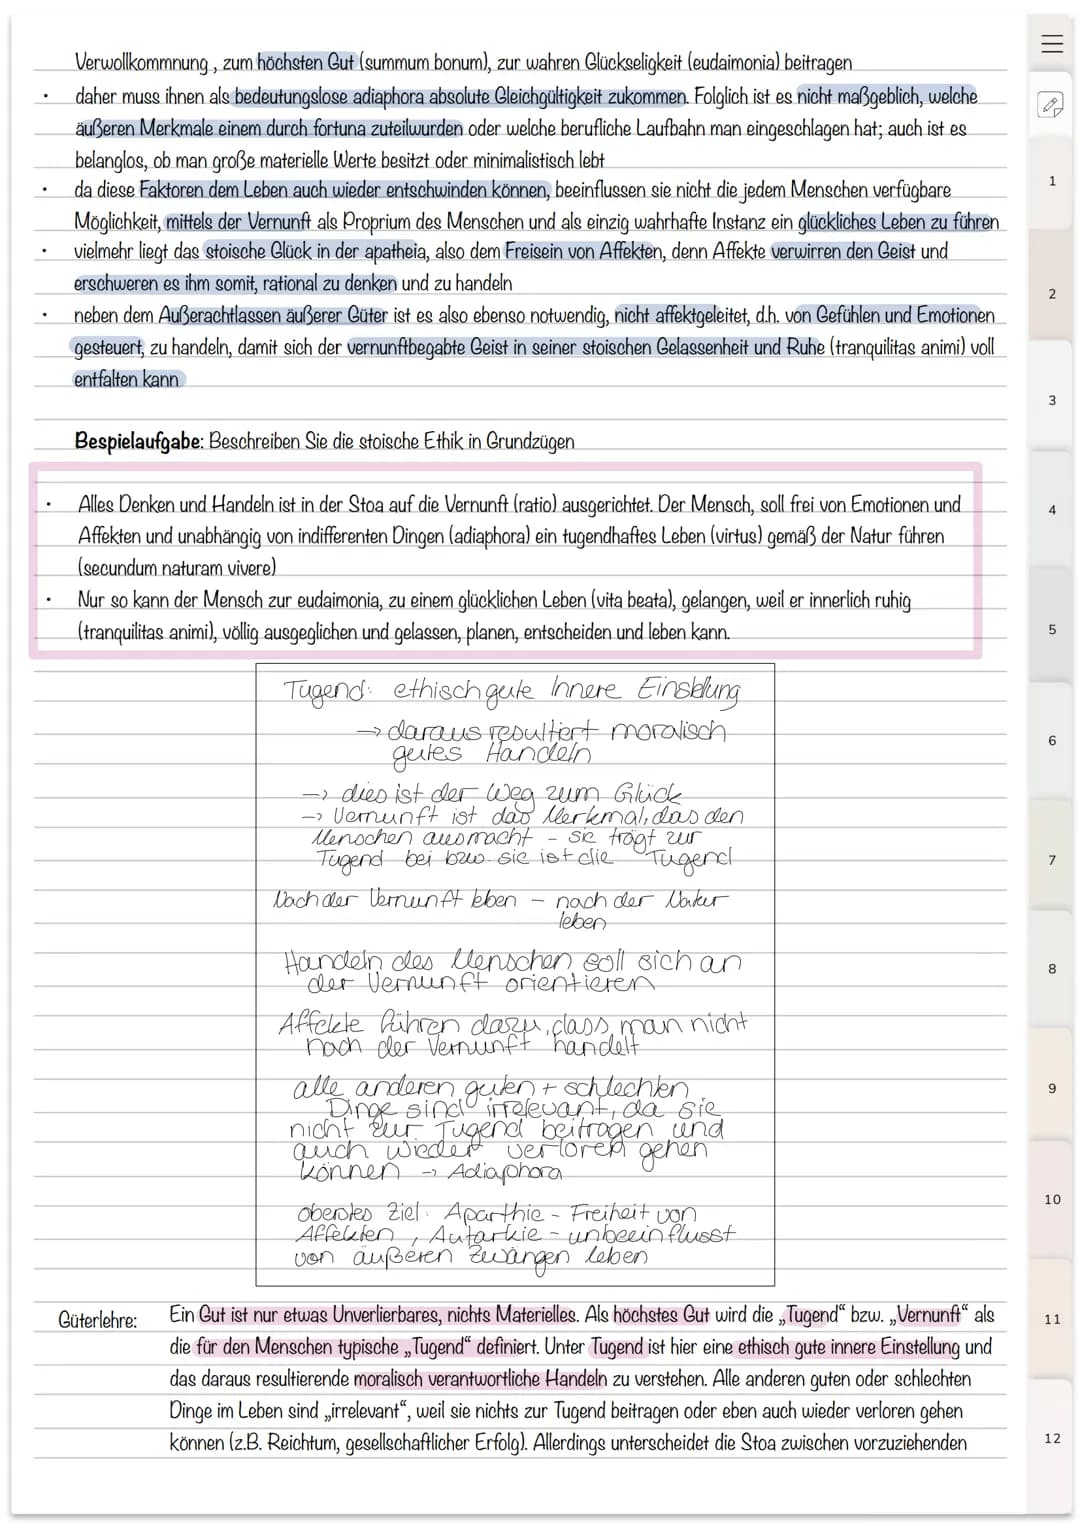 Verwollkommnung , zum höchsten Gut (summum bonum), zur wahren Glückseligkeit (eudaimonia) beitragen
• daher muss ihnen als bedeutungslose adiaphora absolute Gleichgültigkeit zukommen. Folglich ist es nicht maßgeblich, welche
äußeren Merkmale einem durch fortuna zuteilwurden oder welche berufliche Laufbahn man eingeschlagen hat; auch ist es
belanglos, ob man große materielle Werte besitzt oder minimalistisch lebt
• da diese Faktoren dem Leben auch wieder entschwinden können, beeinflussen sie nicht die jedem Menschen verfügbare
Möglichkeit, mittels der Vernunft als Proprium des Menschen und als einzig wahrhafte Instanz ein glückliches Leben zu führen
• vielmehr liegt das stoische Glück in der apatheia, also dem Freisein von Affekten, denn Affekte verwirren den Geist und
erschweren es ihm somit, rational zu denken und zu handeln
• neben dem Außerachtlassen äußerer Güter ist es also ebenso notwendig, nicht affektgeleitet, d.h. von Gefühlen und Emotionen
gesteuert, zu handeln, damit sich der vernunftbegabte Geist in seiner stoischen Gelassenheit und Ruhe (tranquilitas animi) voll
entfalten kann
Bespielaufgabe: Beschreiben Sie die stoische Ethik in Grundzügen
• Alles Denken und Handeln ist in der Stoa auf die Vernunft (ratio) ausgerichtet. Der Mensch, soll frei von Emotionen und
Affekten und unabhängig von indifferenten Dingen (adiaphora) ein tugendhaftes Leben (virtus) gemäß der Natur führen
(secundum naturam vivere)
• Nur so kann der Mensch zur eudaimonia, zu einem glücklichen Leben (vita beata), gelangen, weil er innerlich ruhig
(tranquilitas animi), völlig ausgeglichen und gelassen, planen, entscheiden und leben kann.
Tugend: ethisch gute Innere Einstellung
→ daraus resultiert moralisch
gutes Handeln
→ dies ist der Weg zum Glück
→ Vernunft ist das Merkmal, das den
Menschen ausmacht - sie trägt zur
Tugend bei bzw. sie ist die Tugend
Nach der Vernunft leben - nach der Natur
leben
Handeln des Menschen soll sich an
der Vernunft orientieren
Affekte führen dazu, dass man nicht
nach der Vernunft handelt
alle anderen guten + schlechten
Dinge sind irrelevant, da sie
nicht zur Tugend beitragen und
auch wieder verloren gehen
können → Adiaphora
oberstes Ziel: Aparthie - Freiheit von
Affekten , Autarkie - unbeeinflusst
von äußeren Zwängen leben
Güterlehre: Ein Gut ist nur etwas Unverlierbares, nichts Materielles. Als höchstes Gut wird die „Tugend“ bzw. „Vernunft“ als
die für den Menschen typische „Tugend“ definiert. Unter Tugend ist hier eine ethisch gute innere Einstellung und
das daraus resultierende moralisch verantwortliche Handeln zu verstehen. Alle anderen guten oder schlechten
Dinge im Leben sind „irrelevant“, weil sie nichts zur Tugend beitragen oder eben auch wieder verloren gehen
können (z.B. Reichtum, gesellschaftlicher Erfolg). Allerdings unterscheidet die Stoa zwischen vorzuziehenden
1
2
3
4
5
6
7
8
9
10
11
12